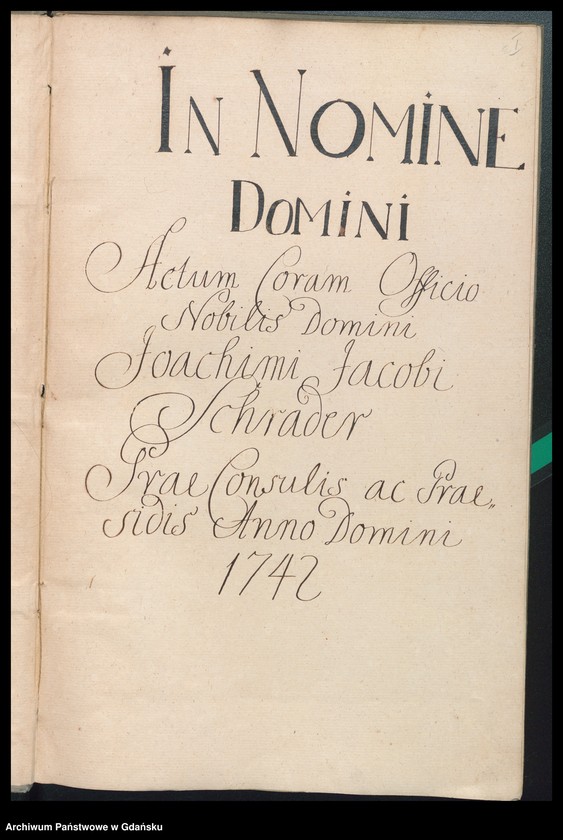 I
IN NOMINE
DOMINI
Actum Coram Officio
Nobilis Domini
Joachimi Jacobi
Schrader
Prae Consulis ac Prae„
sidis Anno Domini
1742
Archiwum Państwowe w Gdańsku